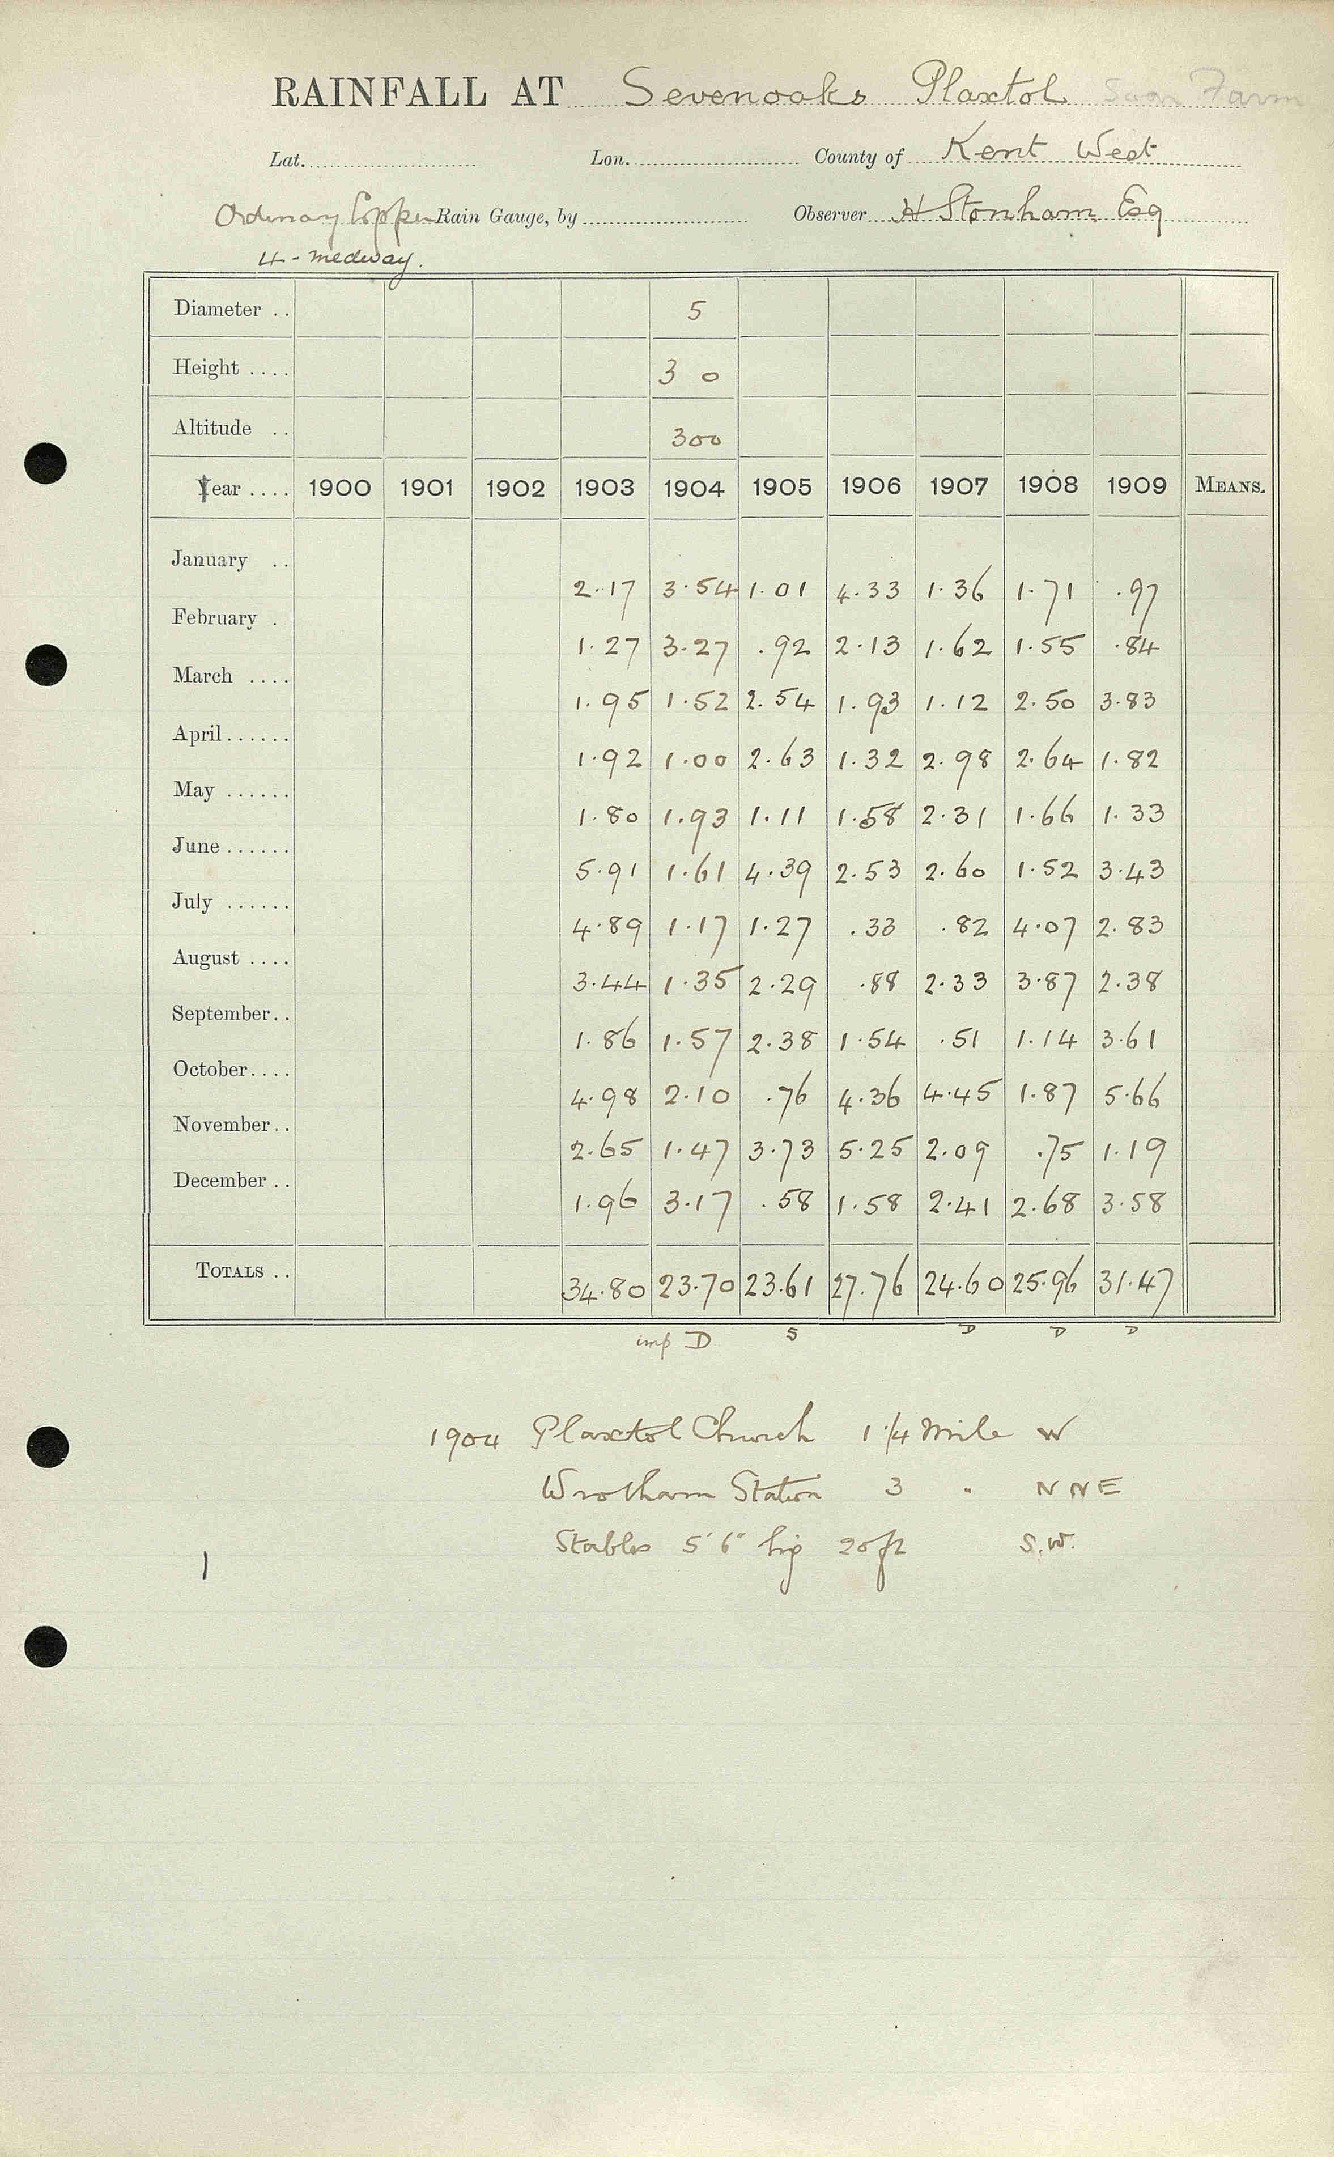 RAINFALL AT Sevenoaks Plaxtol Soar Farm
Lat. Lon. County of Kent West
Ordinary Copper Rain Gauge, by Observer H Stonham Esq
4 - Medway.
Diameter .. 5
Height .... 3 0
Altitude .. 300
Year .... 1900 1901 1902 1903 1904 1905 1906 1907 1908 1909 MEANS.
January .. 2.17 3.54 1.01 4.33 1.36 1.71 .97
February . 1.27 3.27 .92 2.13 1.62 1.55 .84
March .... 1.95 1.52 2.54 1.93 1.12 2.50 3.83
April...... 1.92 1.00 2.63 1.32 2.98 2.64 1.82
May ...... 1.80 1.93 1.11 1.58 2.31 1.66 1.33
June ...... 5.91 1.61 4.39 2.53 2.60 1.52 3.43
July ...... 4.89 1.17 1.27 .33 .82 4.07 2.83
August .... 3.44 1.35 2.29 .88 2.33 3.87 2.38
September.. 1.86 1.57 2.38 1.54 .51 1.14 3.61
October.... 4.98 2.10 .76 4.36 4.45 1.87 5.66
November.. 2.65 1.47 3.73 5.25 2.09 .75 1.19
December .. 1.96 3.17 .58 1.58 2.41 2.68 3.58
TOTALS .. 34.80 23.70 23.61 27.76 24.60 25.96 31.47
imp D S D D D
1904 Plaxtol Church 1 1/4 Mile W
Wrotham Station 3 " N NE
Stables 5'6" hig 20 ft S.W.
1